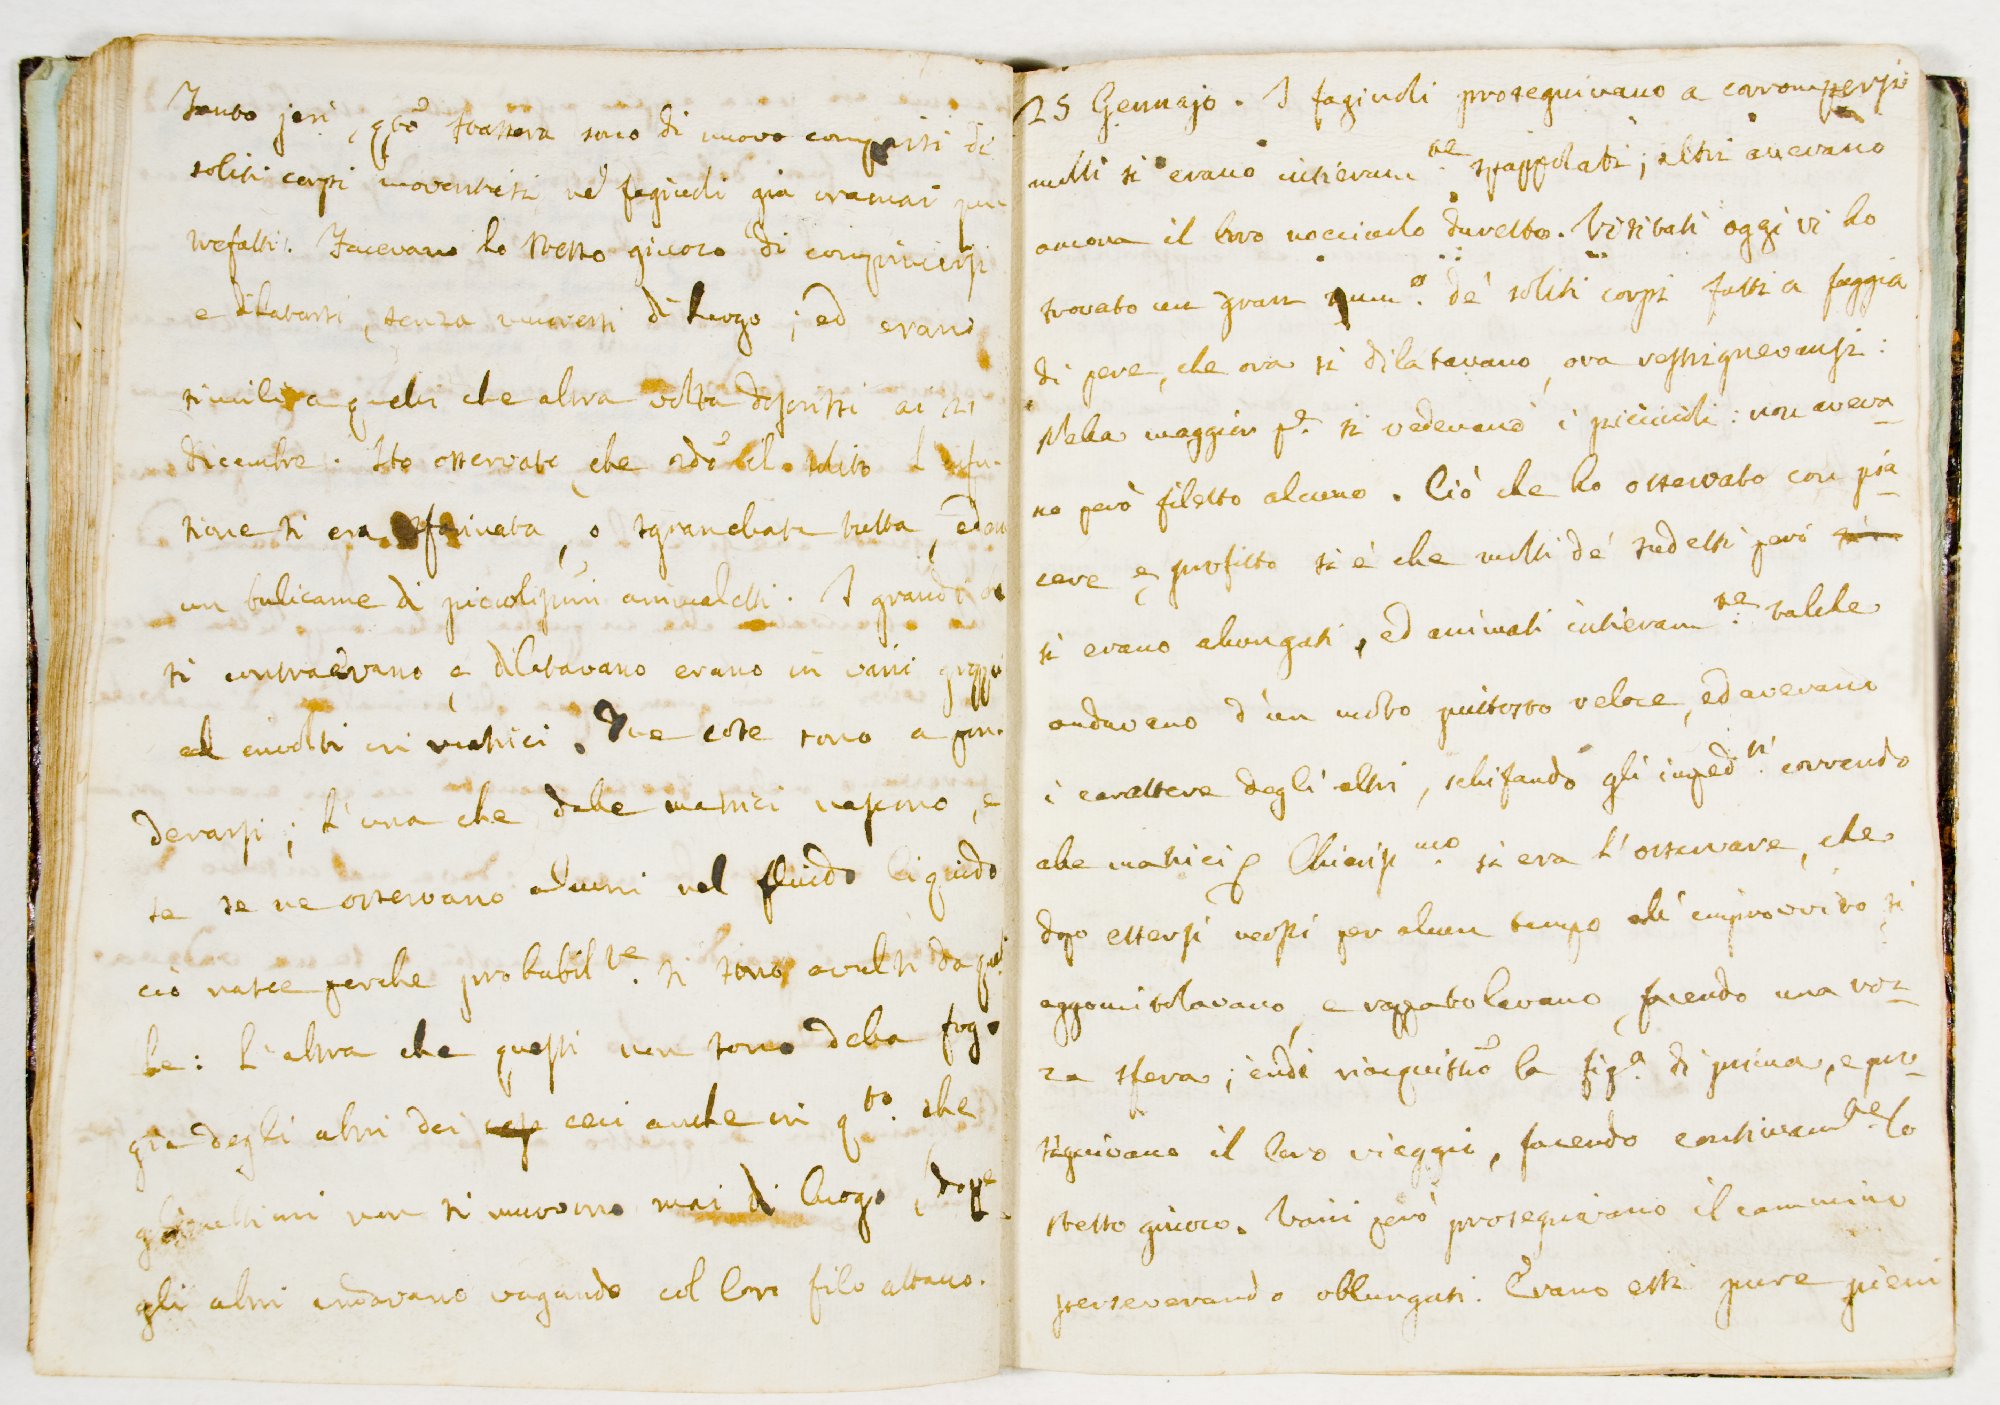 Tanto jeri, qto stassera sono di nuovo comparsi di
soliti corpi moventisi ne' fagiuoli già oramai pu
trefatti. Facevano lo stesso giuoco di comprimersi
e dilatarsi, senza muoversi di luogo; ed erano
simili a quelli che altra volta descrissi ai 21
dicembre. Ho osservato, che il solito l'infu-
sione si era sfarinata, o sgranchiata tutta, ed era
un bulicame di picciolissimi animaletti. I grandi che
si contraevano e dilatavano erano in varii gruppi
ed involti in matrici. Due cose sono a pon-
derarsi; l'una che dalle matrici nascono, e
se se ne osservano alcuni nel fluido liquido
ciò nasce perche probabilte. si sono avulsi da quel
le: L'altra che questi non sono della fog-
gia degli altri dei ceci anche in qto. che
gli ultimi non si muovono mai di luogo, dove
gli altri andavano vagando col loro filo attacco.
25 Gennajo. I fagiuoli proseguivano a corrompersi
molti si erano intieramte. spappolati; altri avevano
ancora il loro nocciuolo duretto. Visitati oggi vi ho
trovato un gran numo. de' soliti corpi fatti a foggia
di pere, che ora si dilatavano, ora restrignevansi:
Nella maggior pe. si vedevano i picciuoli: non aveva-
no però filetto alcuno. Ciò che ho osservato con pia-
cere e profitto si è che molti de' sudetti però
si erano alungati, ed animati intieramte. talche
andavano d'un moto piuttosto veloce, ed avevano
i carattere degli altri, schifando gli impedti. correndo
alle matrici. Chiarissmo. si era l'osservare, che
dopo essersi mossi per alcun tempo all'improvviso, si
aggomitolavano, e rappatolavano, facendo una roz-
za sfera; indi riacquisto la figa. di prima, e pro-
siguivano il loro viaggio, facendo continuamte. lo
stesso giuoco. Varii però proseguivano il cammino
perseverando oblungati. Erano essi pure pieni